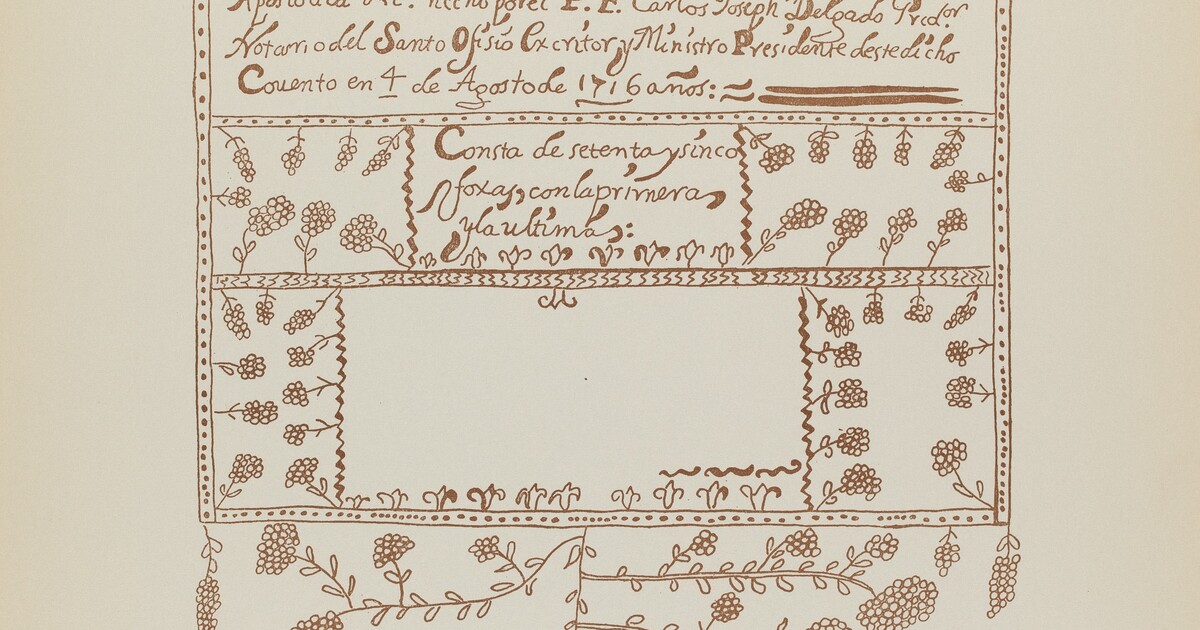 Apostolica Ett.ª hecho por el P. F. Carlos Joseph Delgado Predor
Notario del Santo Ofisio Excritor y Ministro Presidente deste dicho
Couento en 4 de Agosto de 1716 años:
Consta de setenta y sinco
foxas, con la primera
y la ultima: